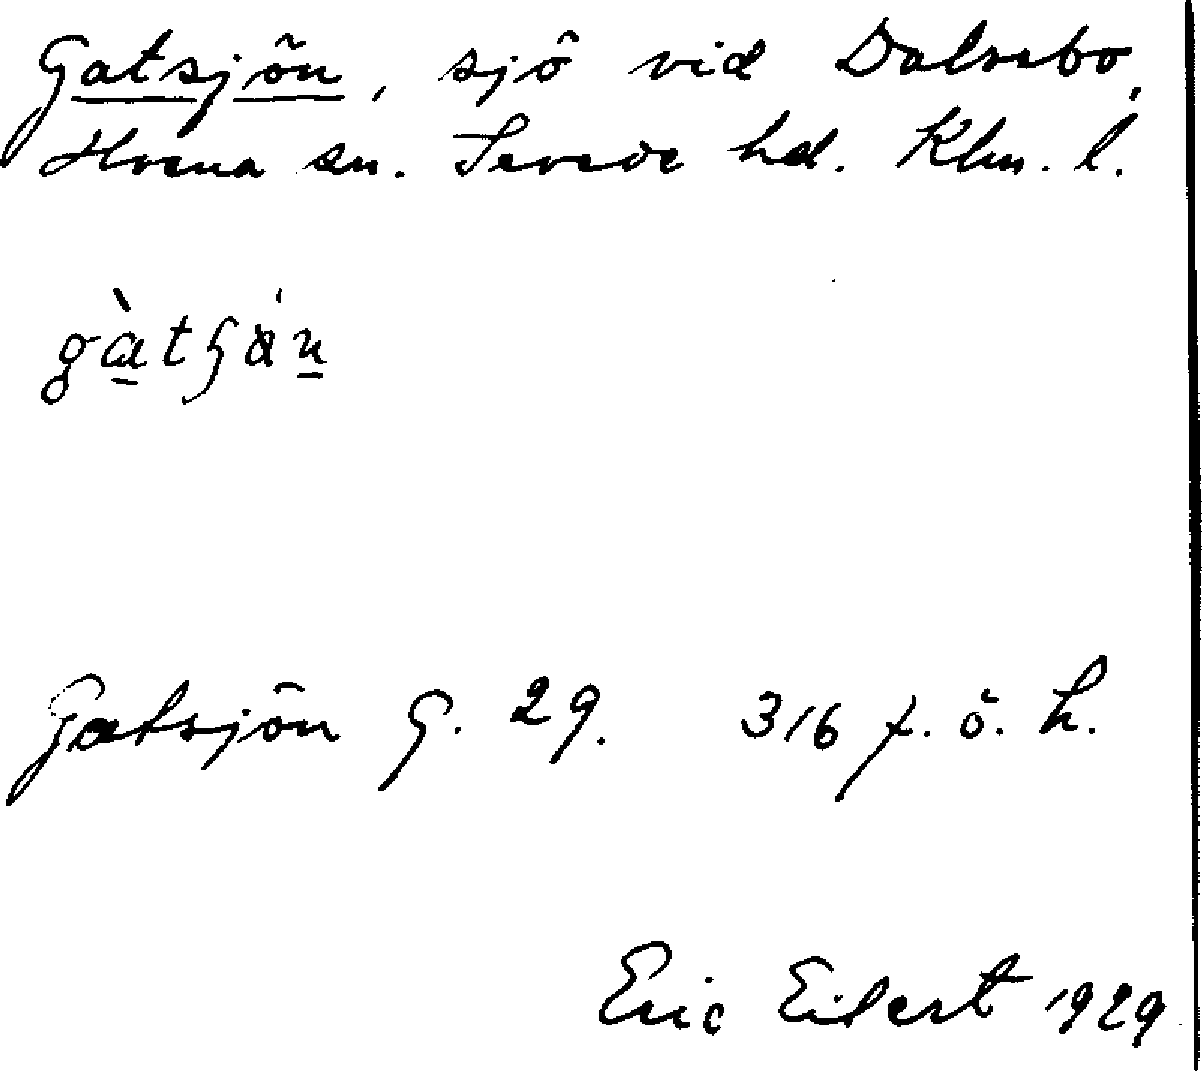 Gatsjön, sjö vid Dalsebo,
Hvena sn. Sevede hd. Klm. l.
Gatsjön G. 29. 316 f. ö. h.
Eric Eilert 1929